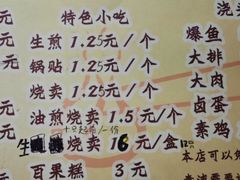 特色小吃
生煎 1.25元/个
锅贴 1.25元/个
烧卖 1.25元/个
油煎烧卖 1.5元/个
十只起
烧卖 16元/盒
百果糕 3元
元
元
元
元
元
元
浇头
爆鱼
大排
大肉
卤蛋
素鸡
本店可以